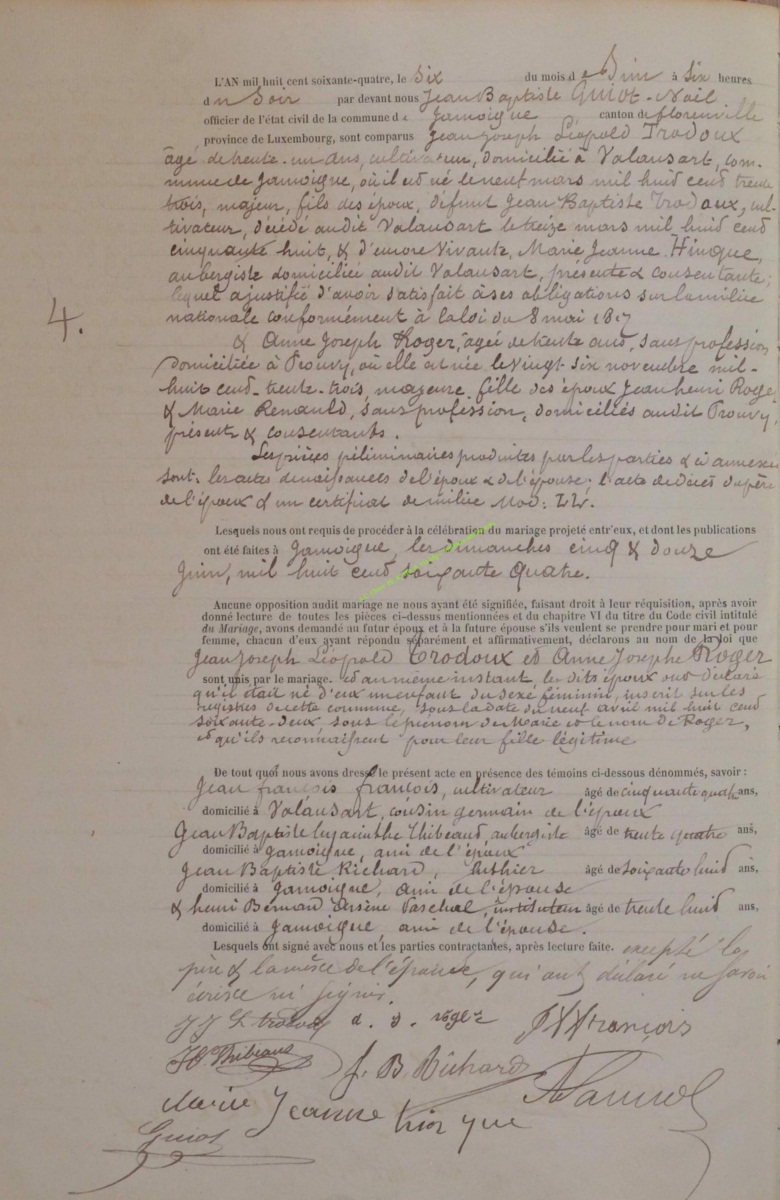 L'AN mil huit cent soixante-quatre, le Six du mois de Juin à Six heures
du Soir par devant nous Jean Baptiste Guiot-Noël
officier de l'état civil de la commune de Jamoigne, canton de florenville
province de Luxembourg, sont comparus Jean Joseph Léopold Trodoux
âgé de trente-un ans, cultivateur, domicilié à Valansart, com-
mune de Jamoigne, où il est né le neuf mars mil huit cent trente
trois, majeur, fils des époux, défunt Jean Baptiste Trodoux, cul-
tivateur, décédé audit Valansart le treize mars mil huit cent
cinquante huit, & d'encore vivante, Marie Jeanne Hinque,
aubergiste domiciliée audit Valansart, présente & consentante;
lequel a justifié d'avoir satisfait à ses obligations sur la milice
nationale conformément à la loi du 8 mai 1817
4.
& Anne Joseph Roger, âgée de trente ans, sans profession
domiciliée à Prouvy, où elle est née le vingt-six novembre mil-
huit cent-trente-trois, majeure, fille des époux Jean henri Roge
& Marie Renauld, sans profession, domiciliés audit Prouvy,
présents & consentants.
Les pièces préliminaires produites par les parties & ci annexées
sont: les actes de naissances de l'époux & de l'épouse; l'acte de décès du père
de l'époux & un certificat de milice Mod: LL.
Lesquels nous ont requis de procéder à la célébration du mariage projeté entr'eux, et dont les publications
ont été faites à Jamoigne, les dimanches cinq & douze
Juin, mil huit cent soixante quatre.
Aucune opposition audit mariage ne nous ayant été signifiée, faisant droit à leur réquisition, après avoir
donné lecture de toutes les pièces ci-dessus mentionnées et du chapitre VI du titre du Code civil intitulé
du Mariage, avons demandé au futur époux et à la future épouse s'ils veulent se prendre pour mari et pour
femme, chacun d'eux ayant répondu séparément et affirmativement, déclarons au nom de la loi que
Jean Joseph Léopold Trodoux et Anne Josephe Roger
sont unis par le mariage. et au même instant, les dits époux ont déclaré
qu'il était né d'eux un enfant du sexe féminin, inscrit sur les
registres de cette commune, sous la date du neuf avril mil huit cent
soixante-deux sous le prénom de Marie et le nom de Roger,
et qu'ils reconnaissent pour leur fille légitime
De tout quoi nous avons dressé le présent acte en présence des témoins ci-dessous dénommés, savoir :
Jean françois françois, cultivateur âgé de cinquante quatre ans,
domicilié à Valansart, cousin germain de l'époux
Jean Baptiste hyacinthe Thibeaud aubergiste âgé de trente quatre ans,
domicilié à Jamoigne, ami de l'époux
Jean Baptiste Richard, luthier âgé de soixante huit ans,
domicilié à Jamoigne, ami de l'épouse
& henri Bernard Arsène Paschal, instituteur âgé de trente huit ans,
domicilié à Jamoigne, ami de l'épouse.
Lesquels ont signé avec nous et les parties contractantes, après lecture faite. excepté le
père & la mère de l'épouse, qui ont déclaré ne savoir
écrire ni signer.
J J L trodoux a. J. roger françois
Thibeaud J. B Richard
Marie Jeanne hinque
Guiot